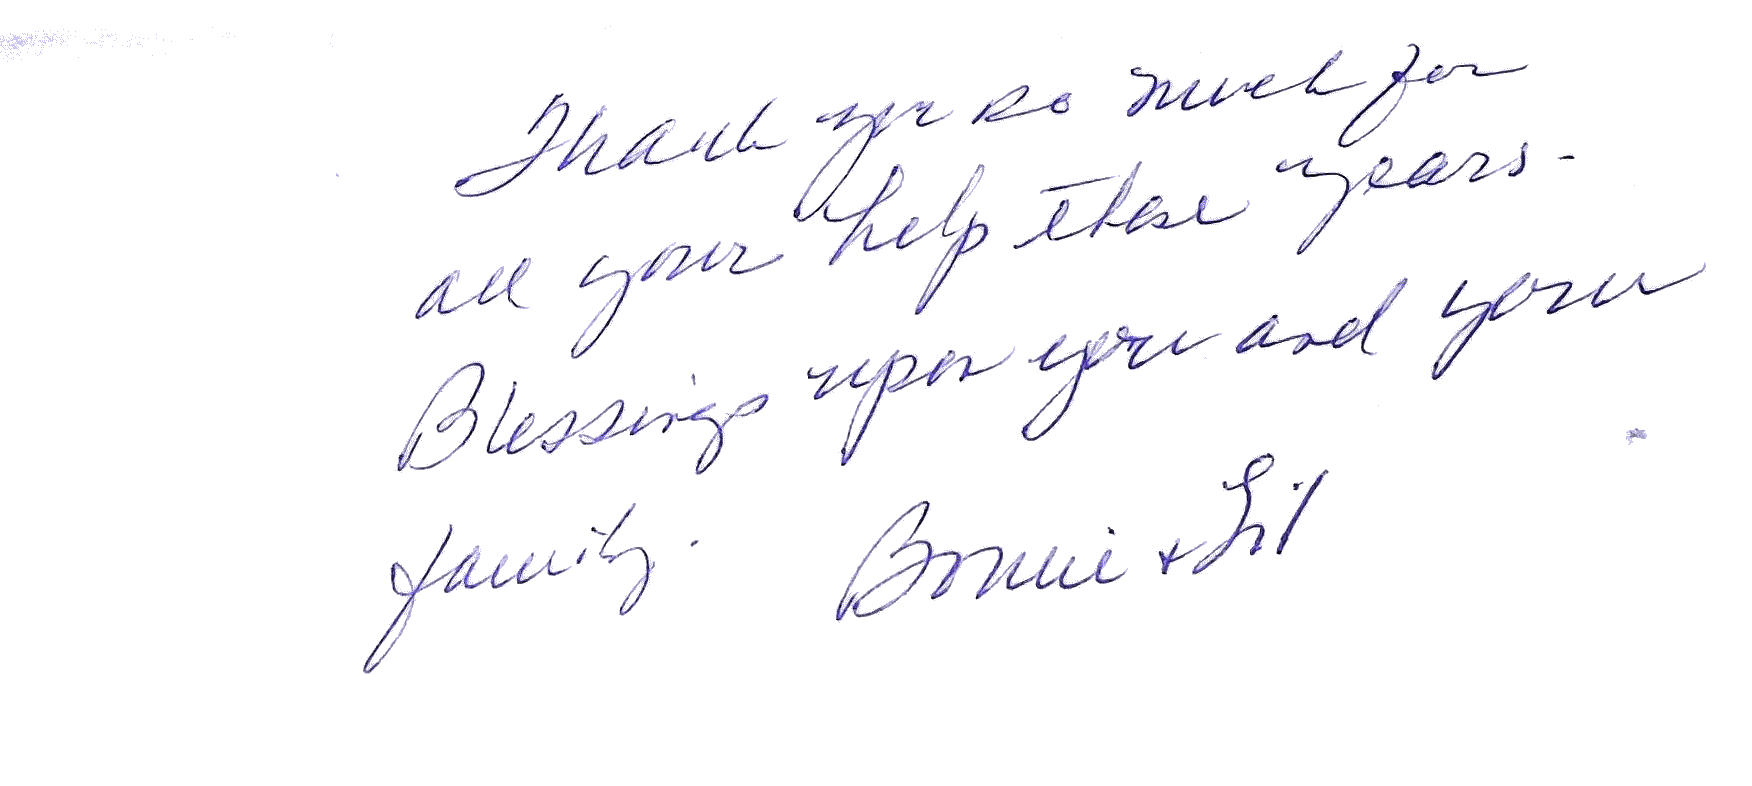 Thank you so much for
all your help these years -
Blessings upon you and your
family. Bonnie + Lil